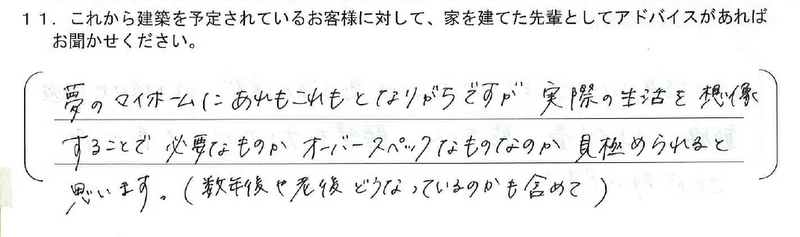 １１．これから建築を予定されているお客様に対して、家を建てた先輩としてアドバイスがあれば
お聞かせください。
夢のマイホームにあれもこれもとなりがちですが 実際の生活を想像
することで 必要なものか オーバースペックなものなのか 見極められると
思います。(数年後や老後どうなっているのかも含めて)